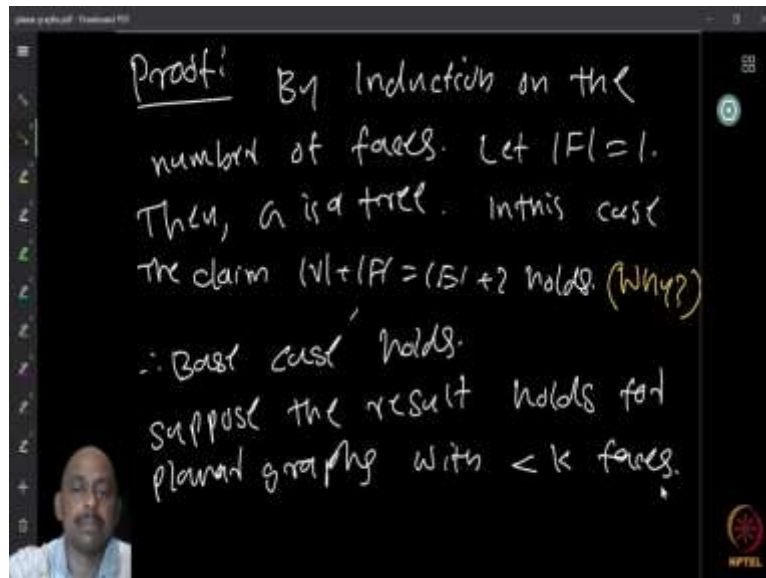 Proof: By Induction on the
number of faces. Let |F|=1.
Then, G is a tree. In this case
The claim |V|+|F|=|E|+2 holds. (Why?)
∴ Base case holds.
suppose the result holds for
planar graphs with < k faces.
NPTEL